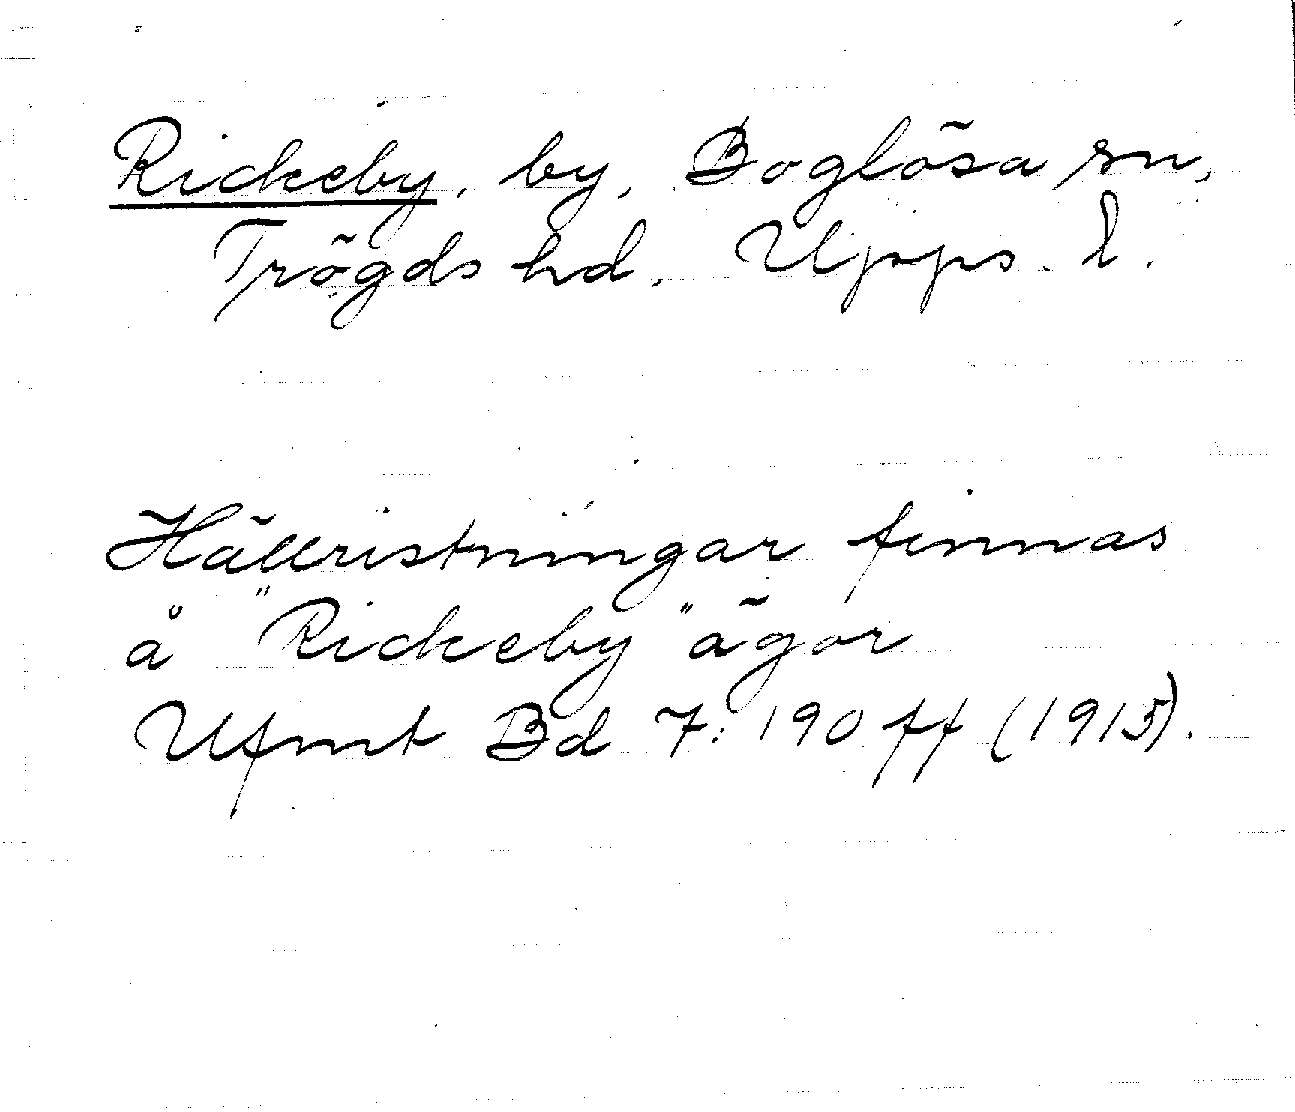 Rickeby, by, Boglösa sn,
Trögds hd, Upps. l.
Hällristningar finnas
å "Rickeby" ägor
Ufmt Bd 7: 190 ff (1915).